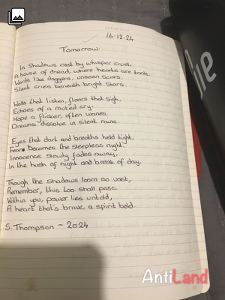 16-12-24
Tomorrow
In shadows cast by whisper cruel,
A house of dread, where hearts are
Words like daggers, unseen scars,
Silent cries beneath bright stars.
Walls that listen, floors that sigh,
Echoes of a muted cry.
Hope a flicker, often wanes,
Dreams dissolve in silent
Eyes that dart and breaths held tight,
Fear becomes the sleepless night.
Innocence slowly fades away,
In the hush of night and break of day.
Though the shadows loom so vast,
Remember, this too shall pass.
Within you, power lies untold,
A heart that's brave a spirit bold.
S. Thompson - 2024
AntiLand